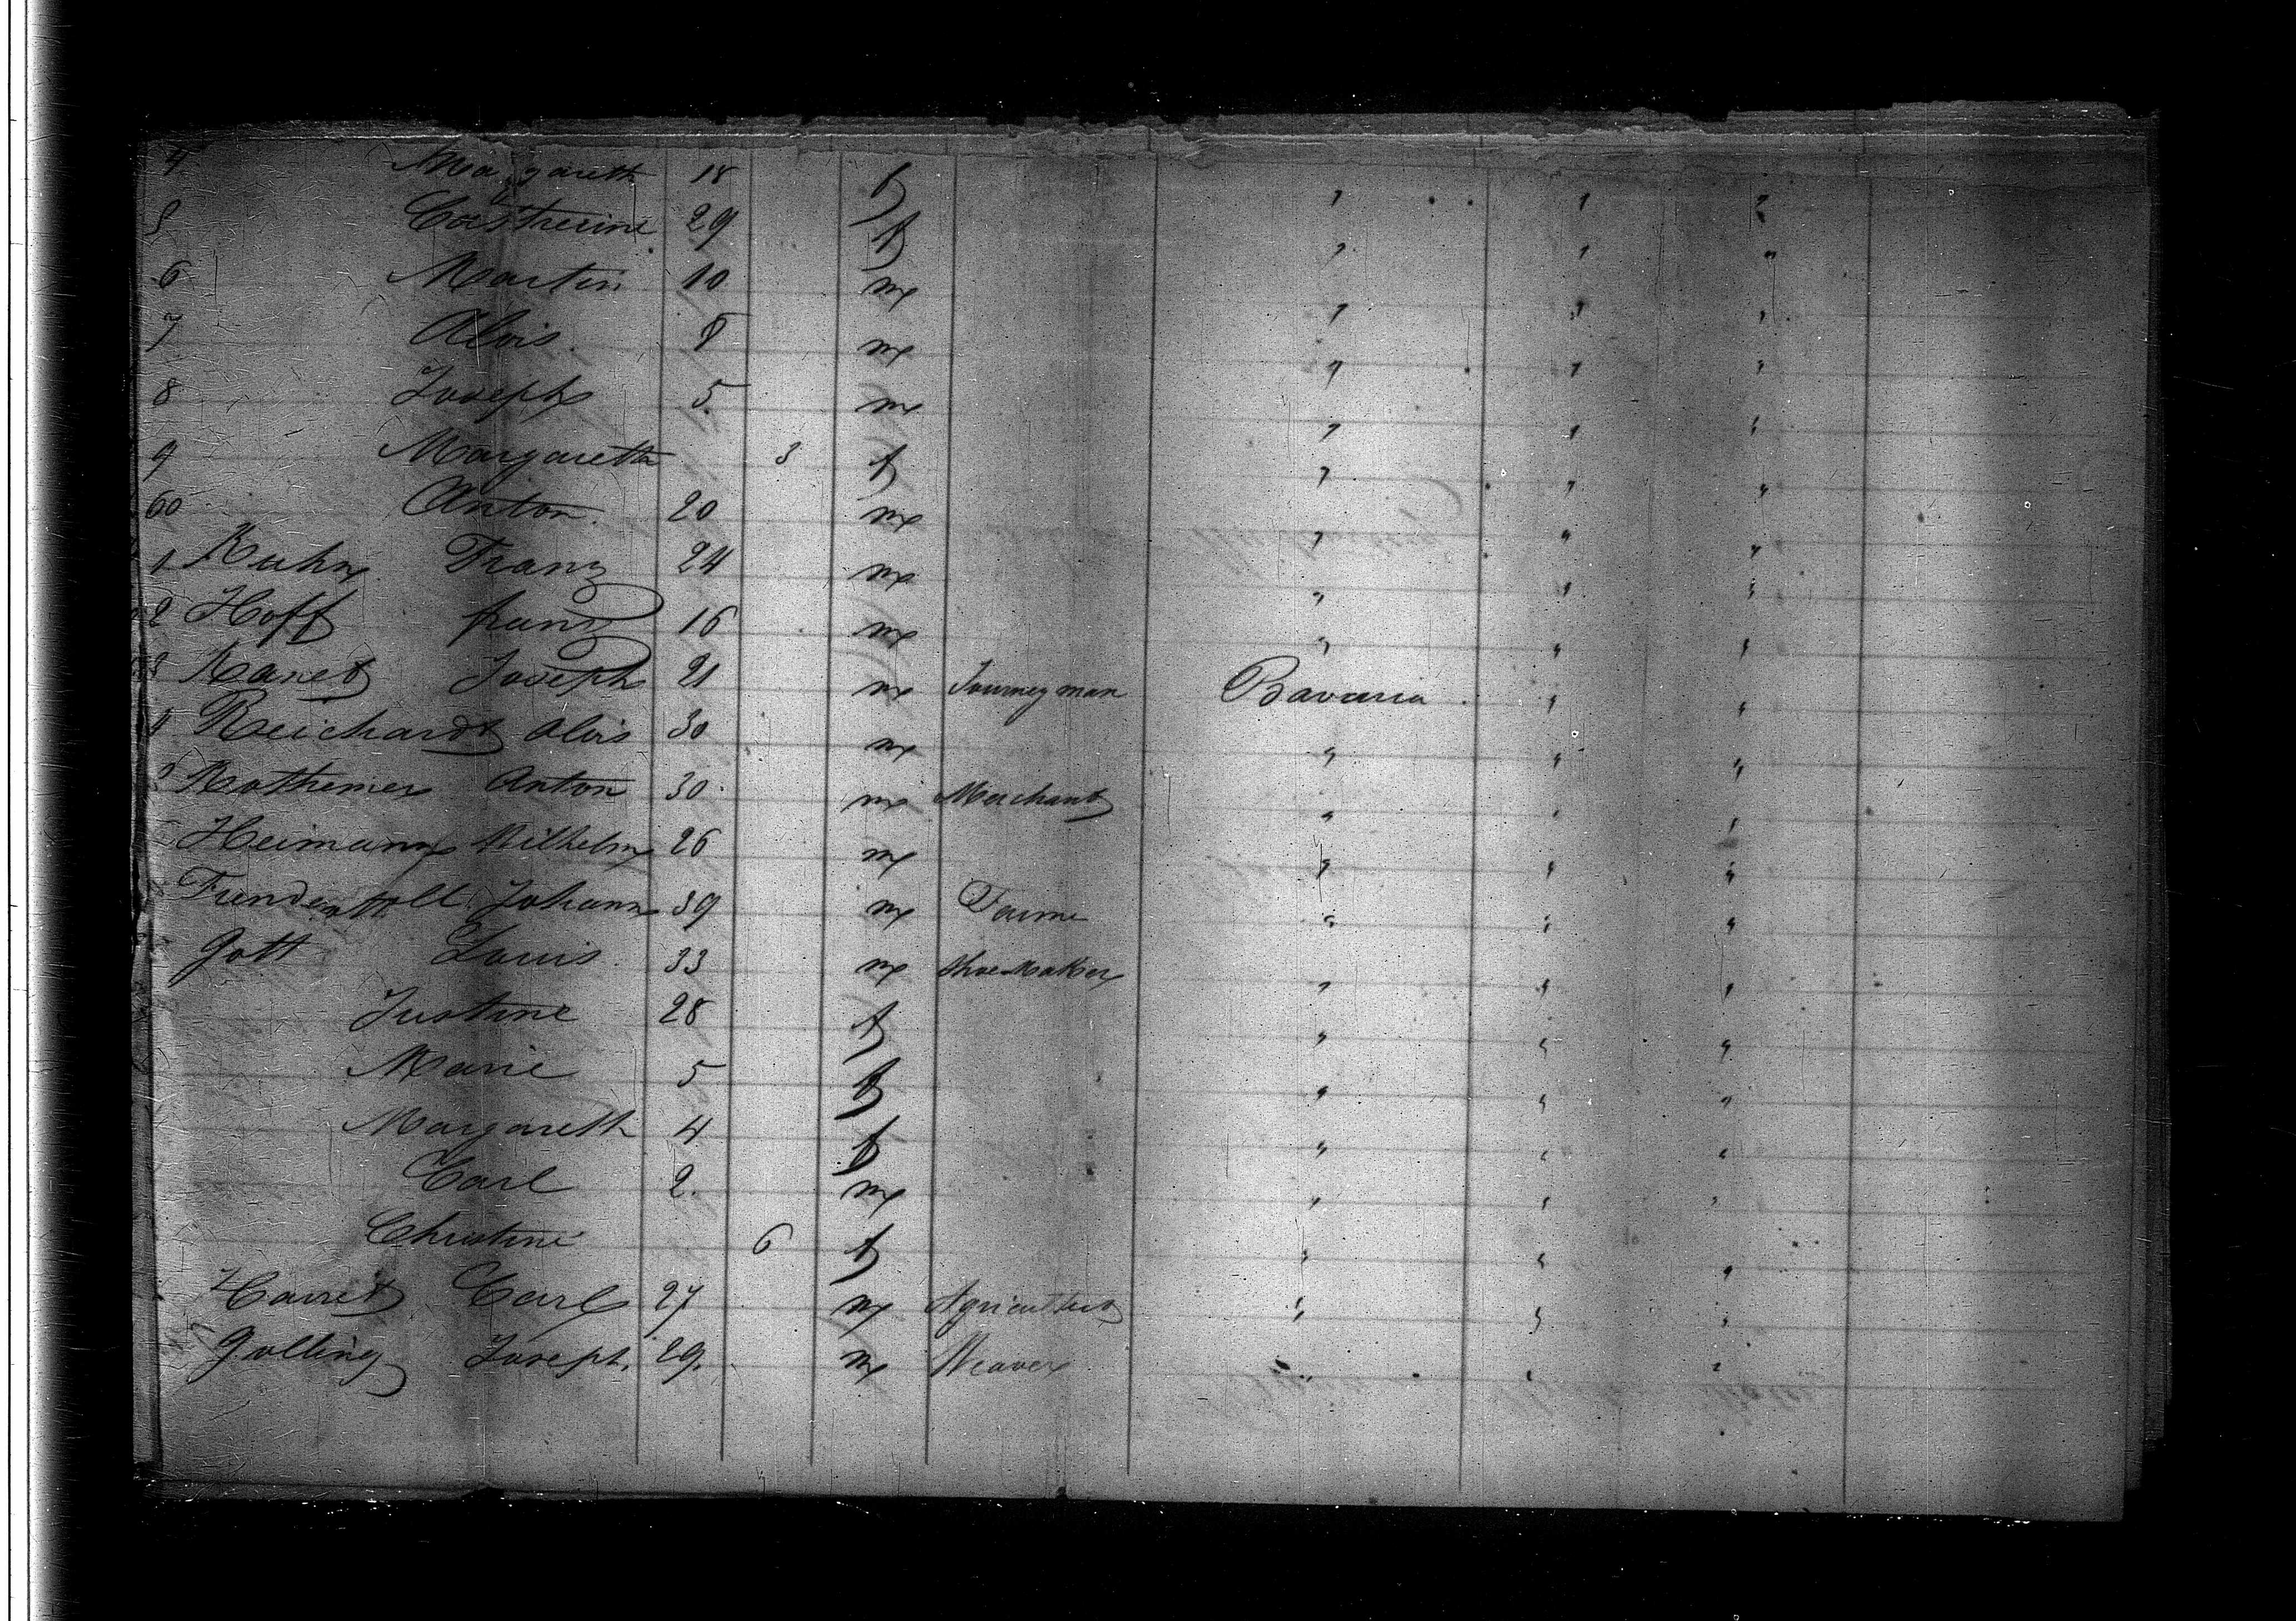 4 Margareth 18 f " " "
5 Catherine 29 f " " "
6 Martin 10 m " " "
7 Alois 8 m " " "
8 Joseph 5 m " " "
9 Margaretha 3 f " " "
60 Anton 20 m " " "
1 Kuhn Franz 24 m " " "
2 Hoff Franz 16 m " " "
3 Joseph 21 m Journeyman Bavaria " "
4 Reichardt Alois 30 m " " "
5 Anton 30 m Merchant " " "
Heimann Wilhelm 26 m " " "
Johann 39 m Farme " " "
Gott Louis 33 m Shoemaker " " "
Justine 28 f " " "
Marie 5 f " " "
Margareth 4 f " " "
Carl 2 m " " "
Christine 6 f " " "
Carl 27 m " " "
Golling Joseph 29 m Weaver " " "